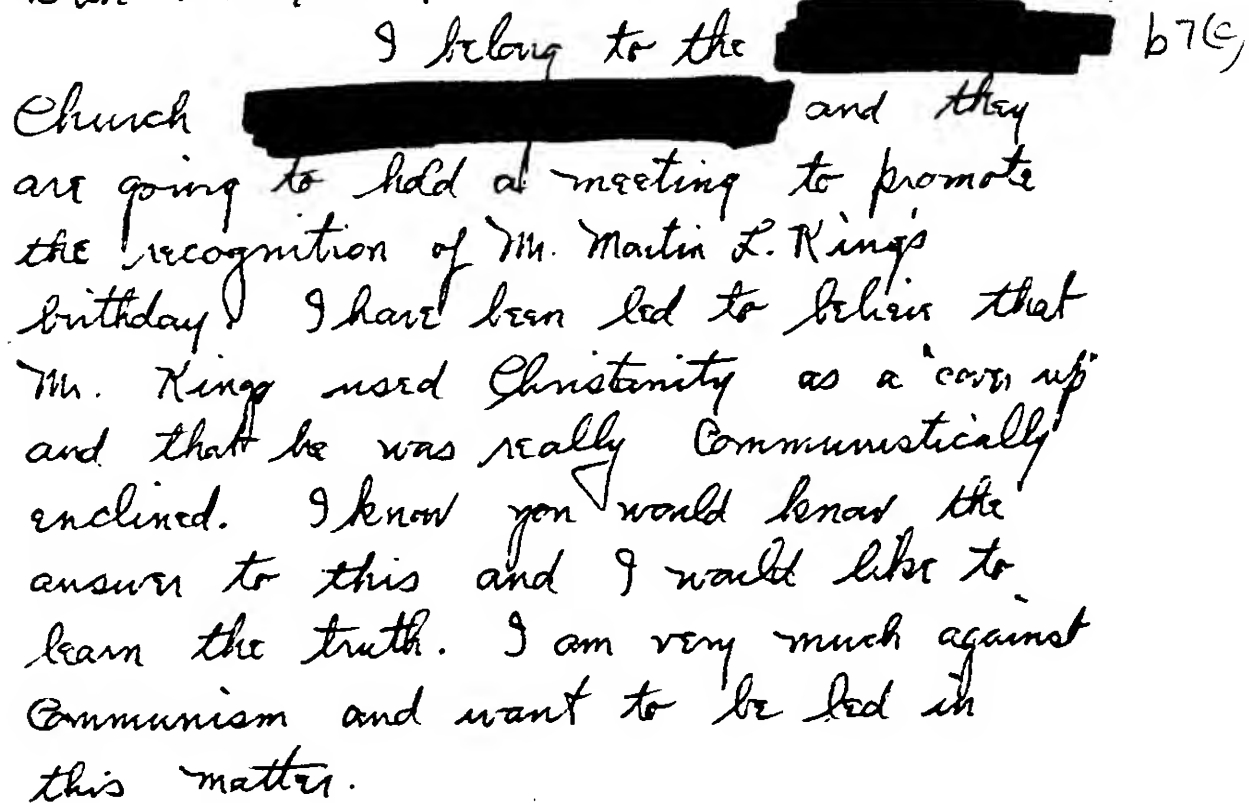 I belong to the b7(c)
Church and they
are going to hold a meeting to promote
the recognition of Mr. Martin L. King's
birthday. I have been led to believe that
Mr. King used Christanity as a "cover up"
and that he was really Communistically
enclined. I know you would know the
answer to this and I would like to
learn the truth. I am very much against
Communism and want to be led in
this matter.